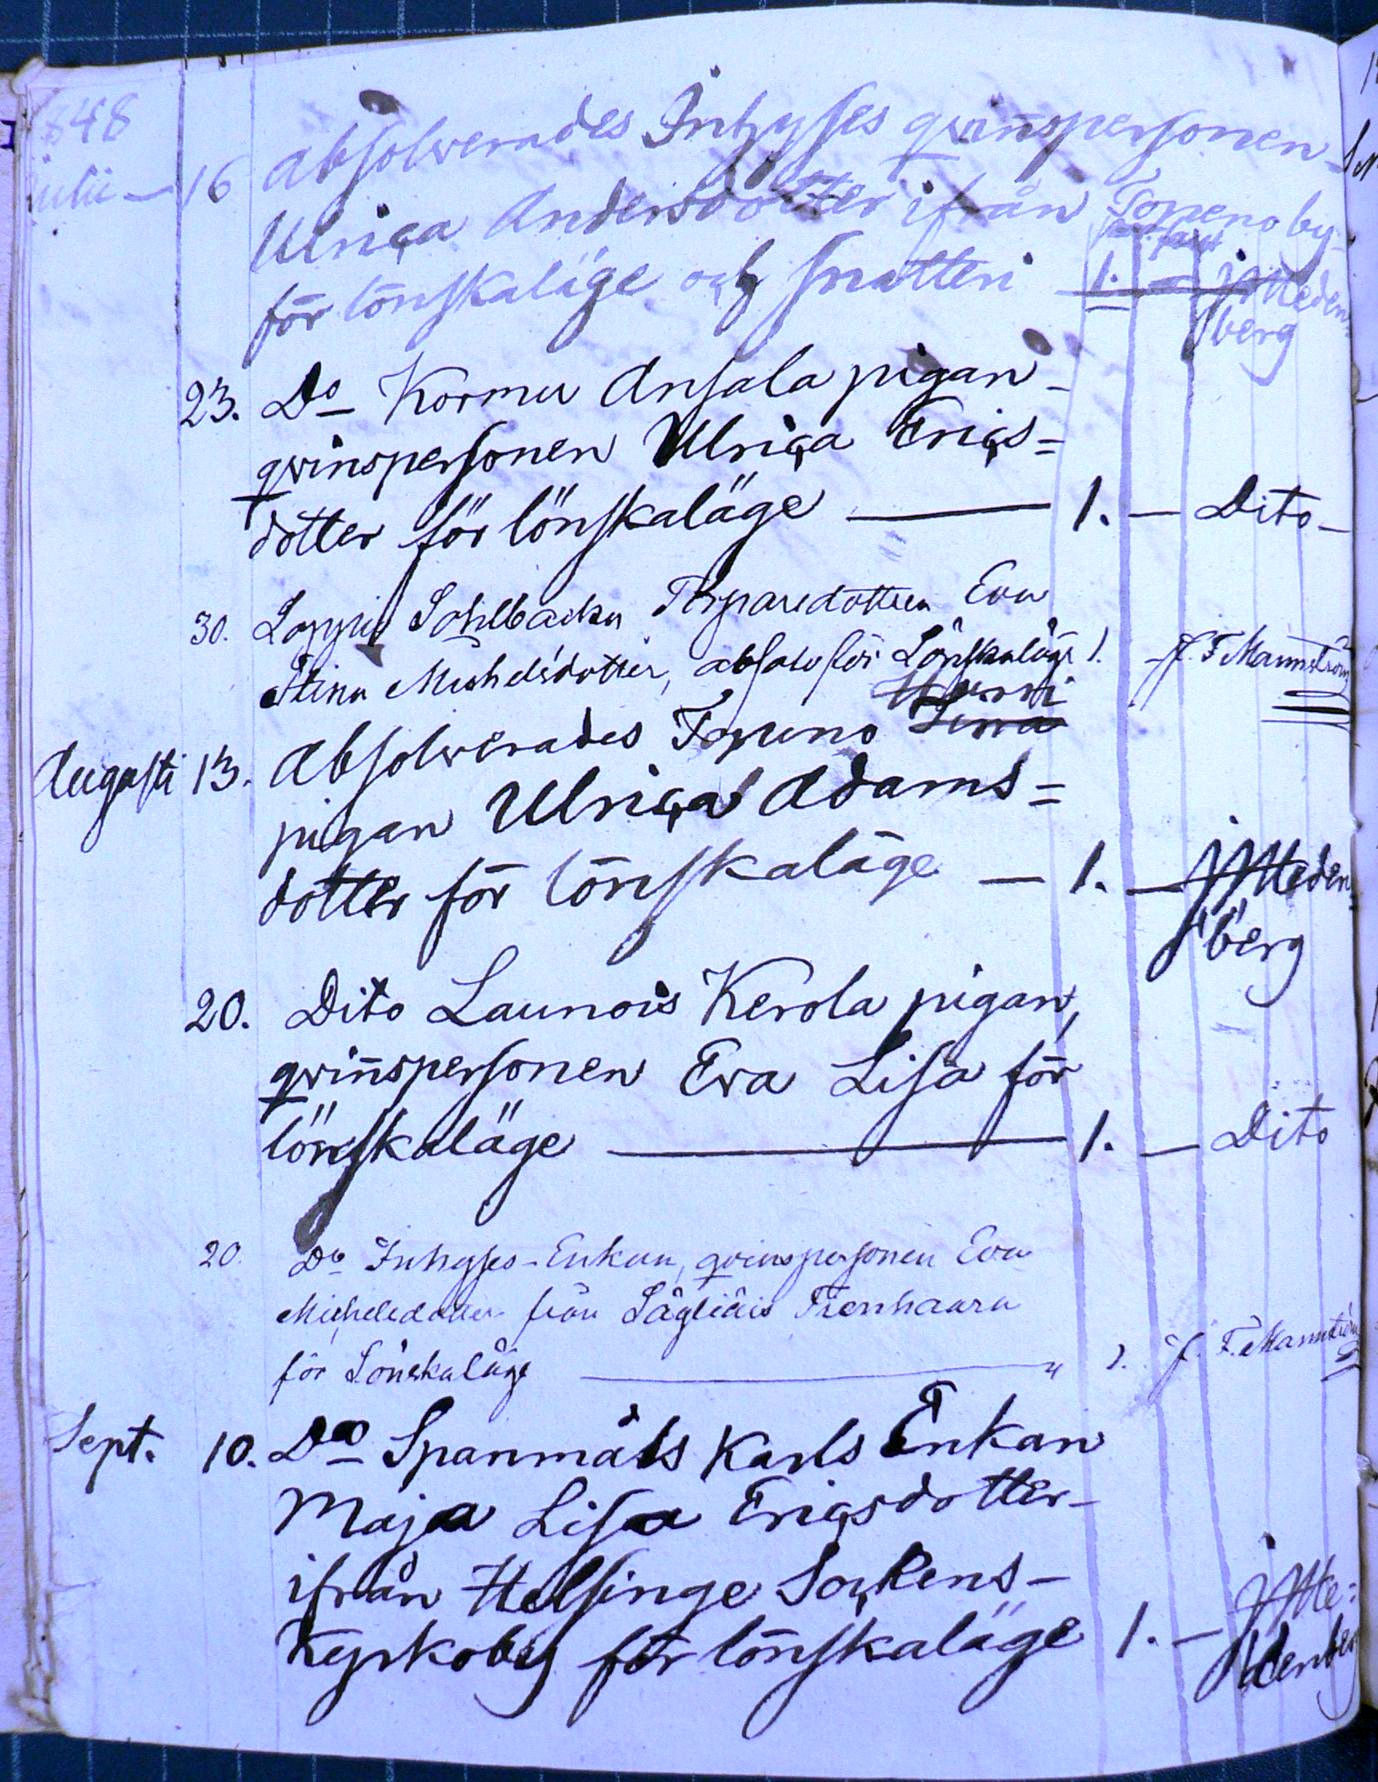 1848
Julii — 16 Absolverades Inhyses qvinspersonen
Ulrica Andersdotter ifrån Topeno by
för lönskaläge och snatteri 1. — J Heden=
berg
23. Do Kormu Ansala pigan
qvinspersonen Ulrica Erics=
dotter för lönskaläge — 1. — Dito —
30. Loppis Sohlbacka Torparedottren Eva
Stina Michelsdotter, absolv för Lönskaläge 1. J. F. Mannström
Augusti 13. Absolverades Topeno
pigan Ulrica Adams=
dotter för lönskaläge — 1. — J Heden=
berg
20. Dito Launois Kerola pigan,
qvinspersonen Eva Lisa för
lönskaläge — 1. — Dito
20. Do Inhyses-Enkan, qvinspersonen Eva
Michelsdotter från Sägliäis
för Lönskaläge — " 1. J. F. Mannström
Sept. 10. Do Spanmåls Karls Enkan
Maja Lisa Ericsdotter
ifrån Helsinge Sockens
Kyrkoby för lönskaläge 1. — J He=
denberg